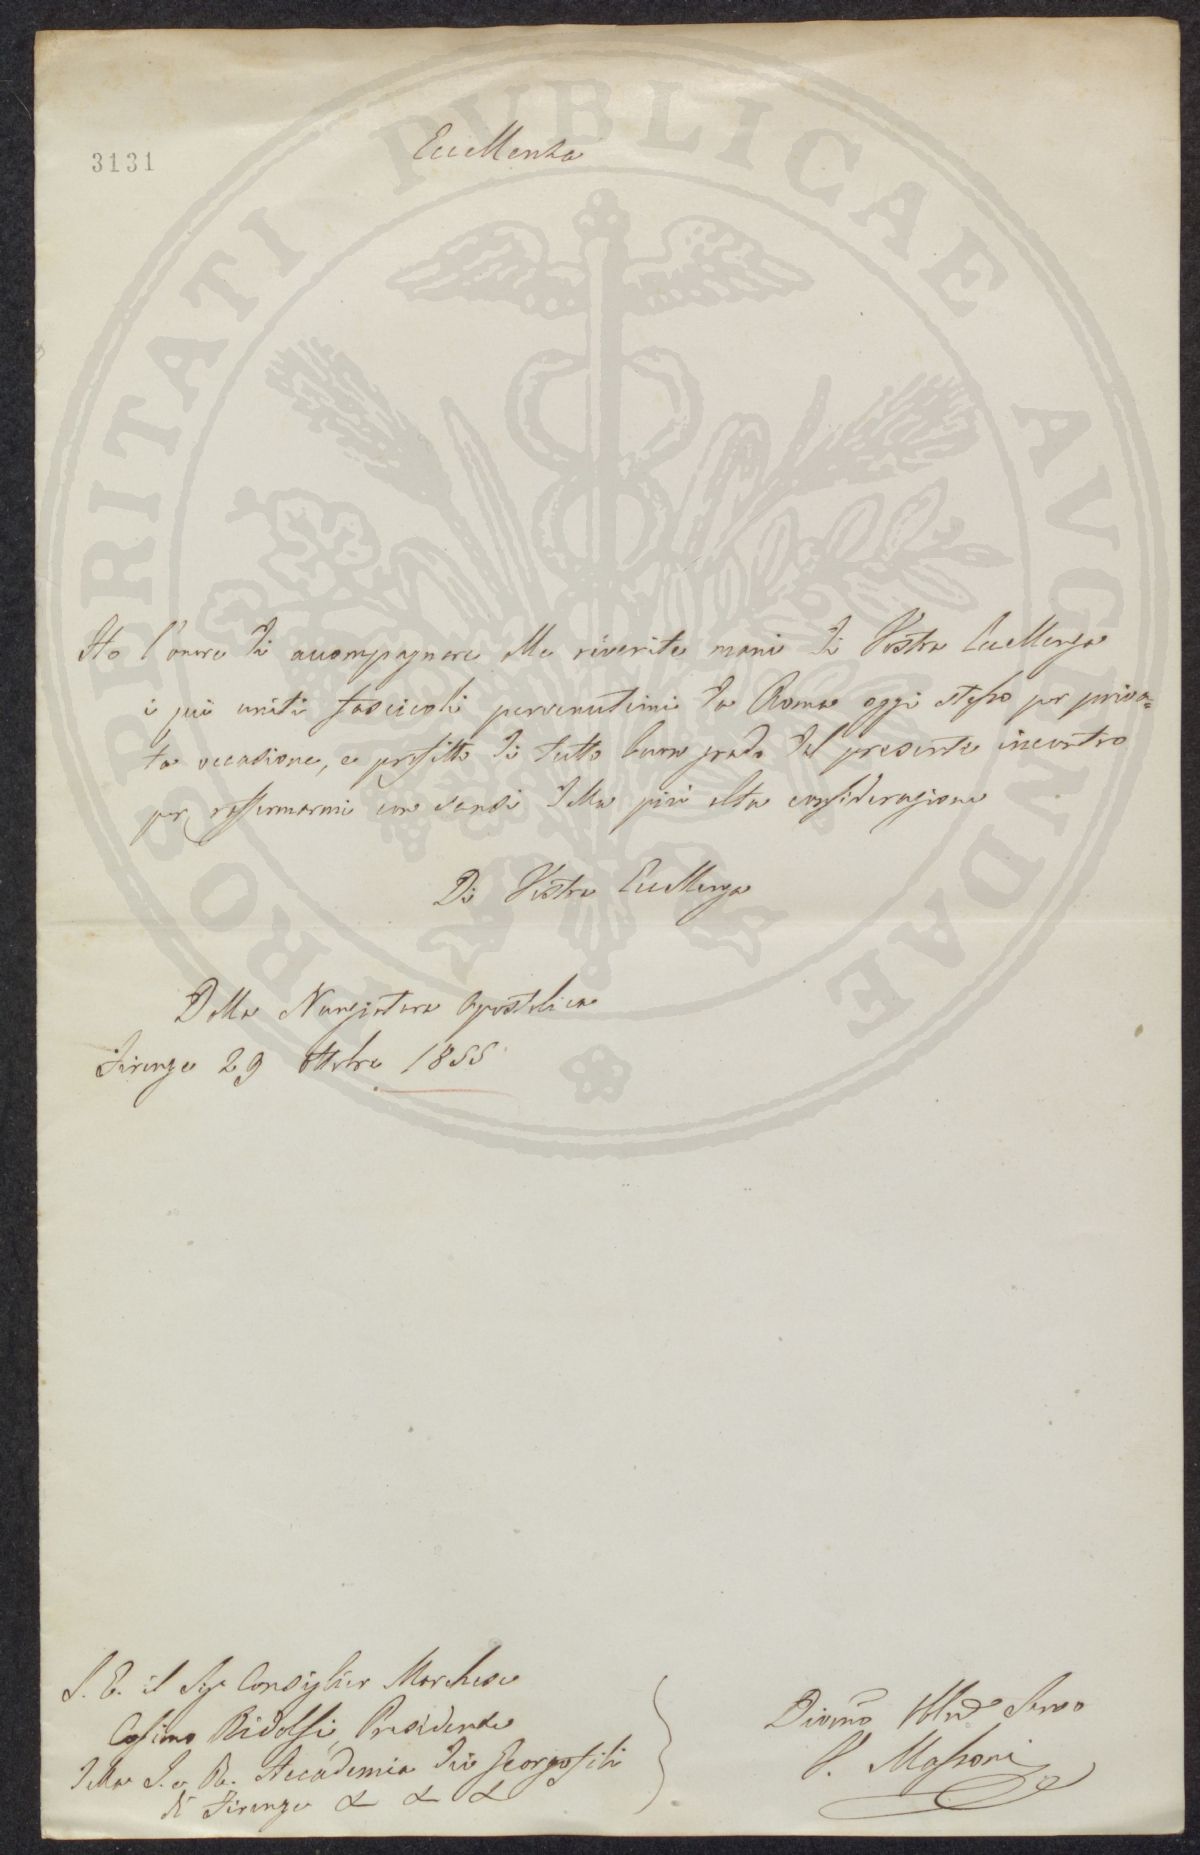 3131
Eccellenza
Ho l'onore di accompagnare alle riverite mani di Vostra Eccellenza
i qui uniti fascicoli pervenutimi da Roma oggi stesso per priva=
ta occasione, e profitto di tutto buon grado del presente incontro
per raffermarmi con sensi della più alta considerazione
Di Vostra Eccellenza
Dalla Nunziatura Apostolica
Firenze 29 Ottobre 1855
S. E. il Sigr Consiglier Marchese
Cosimo Ridolfi, Presidente
della I. e R. Accademia dei Georgofili
di Firenze
Servo
V. Massoni
PROSPERITATI PVBLICAE AVGENDAE